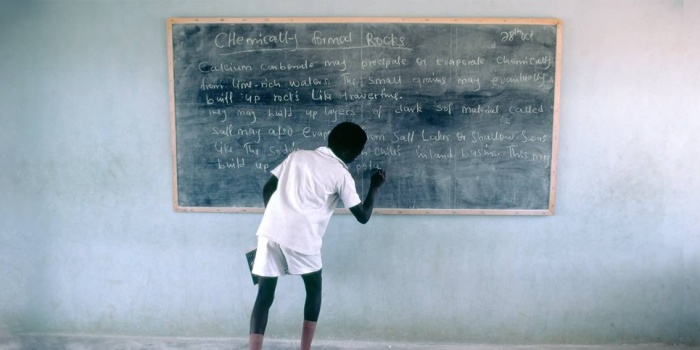 Chemically formed Rocks
28th Oct
Calcium carbonate may precipate or evaporate chemically
from lime-rich waters. The small grains may eventually
built up rocks Like Travertine.
may build up layers of dark soft material called
salt may also Evap from Salt Lakes or Shallow Seas
Like The in Chile's inland basins. This may
build up